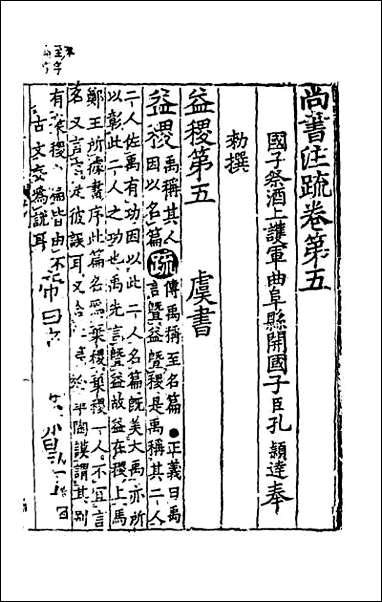 尚書注疏卷第五
國子祭酒上護軍曲阜縣開國子臣孔穎達奉
勅撰
益稷第五 虞書
益稷禹稱其人
因以名篇
疏
傳禹稱至名篇●正義曰禹
言暨益暨稷是禹稱其二人
二人佐禹有功因以此二人名篇既美大禹亦所
以彰此二人之功也禹先言暨益故益在稷上馬
鄭王所據書序此篇名為棄稷棄稷一人不宜言
名又言 彼誤耳又合 皋陶謨謂其別
有棄稷 篇皆由不
古文妄為說耳
帝曰